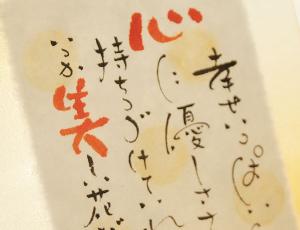 幸せいっぱい
心に優しさ
持ちつづけていれ
いつか
美しい花が